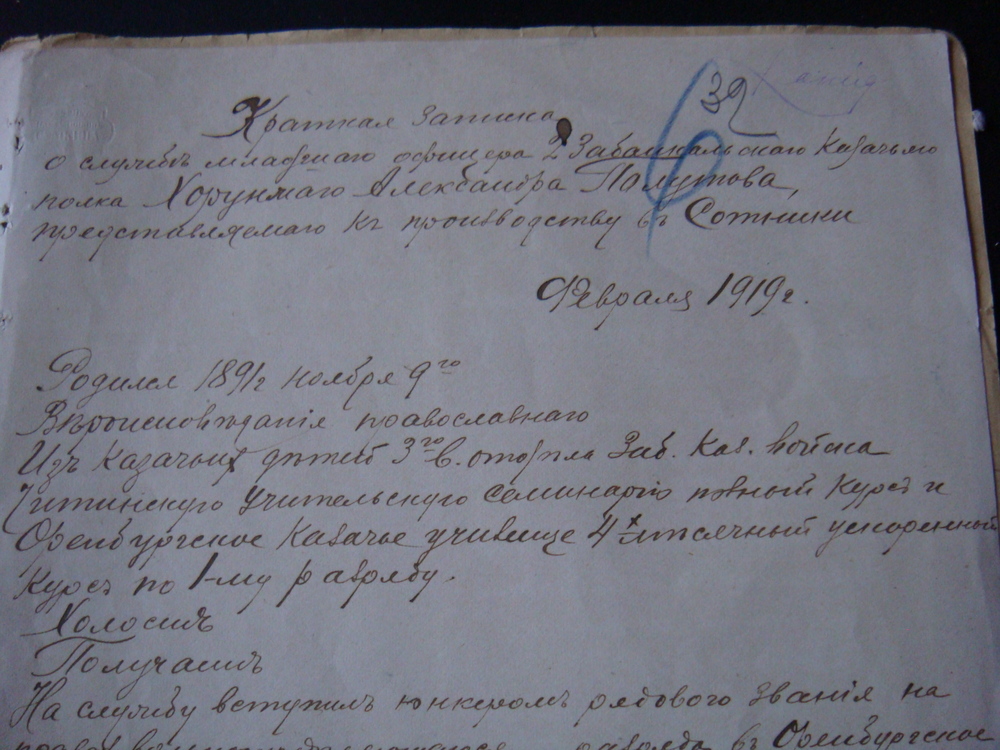 39
Краткая записка
о службѣ младшаго офицера 2 Забайкальскаго Казачьяго
полка Хорунжаго Александра Полутова,
представляемаго къ производству въ Сотники
Февраля 1919 г.
Родился 1891 г ноября 9го
Вѣроисповѣданія православнаго
Изъ казачьих дѣтей 3го в. отдѣла Заб. Каз. войска
Читинскую учительскую семинарію полный курсъ и
Оренбургское казачье училище 4х мѣсячный ускоренный
курсъ по 1-му разряду.
Холостъ
Получаетъ
На службу вступилъ юнкеромъ рядового званія на
разряда въ Оренбургское